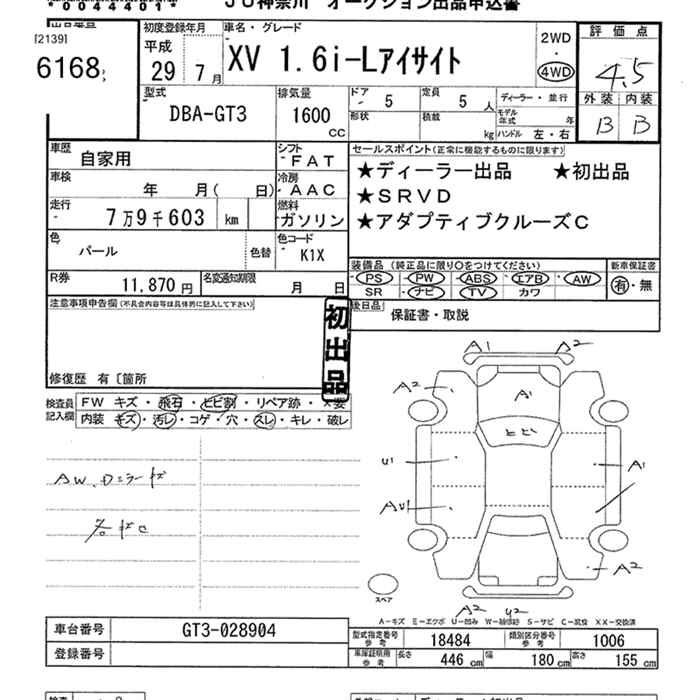 *0044401*
JU神奈川 オークション出品申込書
[2139]
6168
初度登録年月
平成
29年 7月
車名・グレード
XV 1.6i-Lアイサイト
2WD
・
4WD
評価点
4.5
外装 内装
B B
型式
DBA-GT3
排気量
1600
CC
ドア
5
定員
5 人
ディーラー・並行
形状
積載
kg
モデル年式 年
ハンドル 左・右
車歴
自家用
シフト
FAT
車検
年 月( 日)
冷房
AAC
走行
7万9千603 km
燃料
ガソリン
色
パール
色替
色コード
K1X
R券
11,870円
名変通知期限
月 日
セールスポイント(正常に機能するものに限ります)
★ディーラー出品 ★初出品
★SRVD
★アダプティブクルーズC
装備品 (純正品に限り○をつけてください)
PS・PW・ABS・エアB・AW
SR・ナビ・TV・カワ
新車保証書
有・無
後日品
保証書・取説
注意事項申告欄(不具合内容等は具体的に記入して下さい)
初出品
修復歴 有〔箇所
検査員記入欄
FW キズ・飛石・ヒビ割・リペア跡・ 要
内装 キズ・汚レ・コゲ・穴・スレ・キレ・破レ
AW、Dミラーキズ
各キズ
A1 A2
A2
A1
ヒビ
U1
A1
AU1
A2
A2 U2
スペア
A-キズ E-エクボ U-凹み W-補修跡 S-サビ C-腐食 XX-交換済
車台番号
GT3-028904
登録番号
型式指定番号 参考
18484
類別区分番号 参考
1006
車庫証明用 参考
長さ 446cm 幅 180cm 高さ 155cm